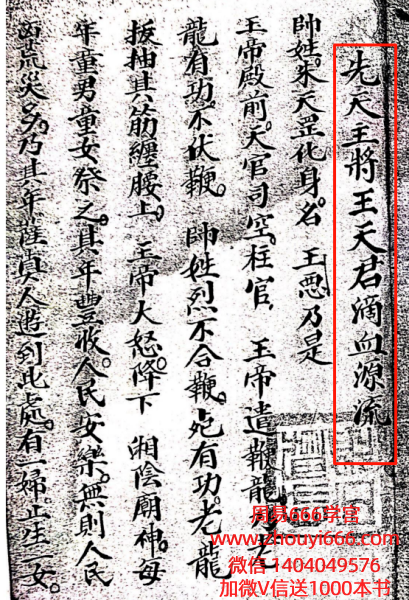 先天主將王天君滴血源流
帥姓朱天罡化身名 王惡乃是
王帝殿前。天官司空柱官 王帝遣鞭龍老
龍有功。不伏鞭。 帥姓烈不合鞭。死有功。老龍
拔抽其筋纏腰上。 王帝大怒。降下 湘陰廟神。每
年童男童女祭之。其年豐收。人民安樂。無則人民
荒災多。乃其年薩真人遊到此處。有一婦。止生一女。
周易666学宫
www.zhouyi666.com
微信1404049576
加微V信送1000本书